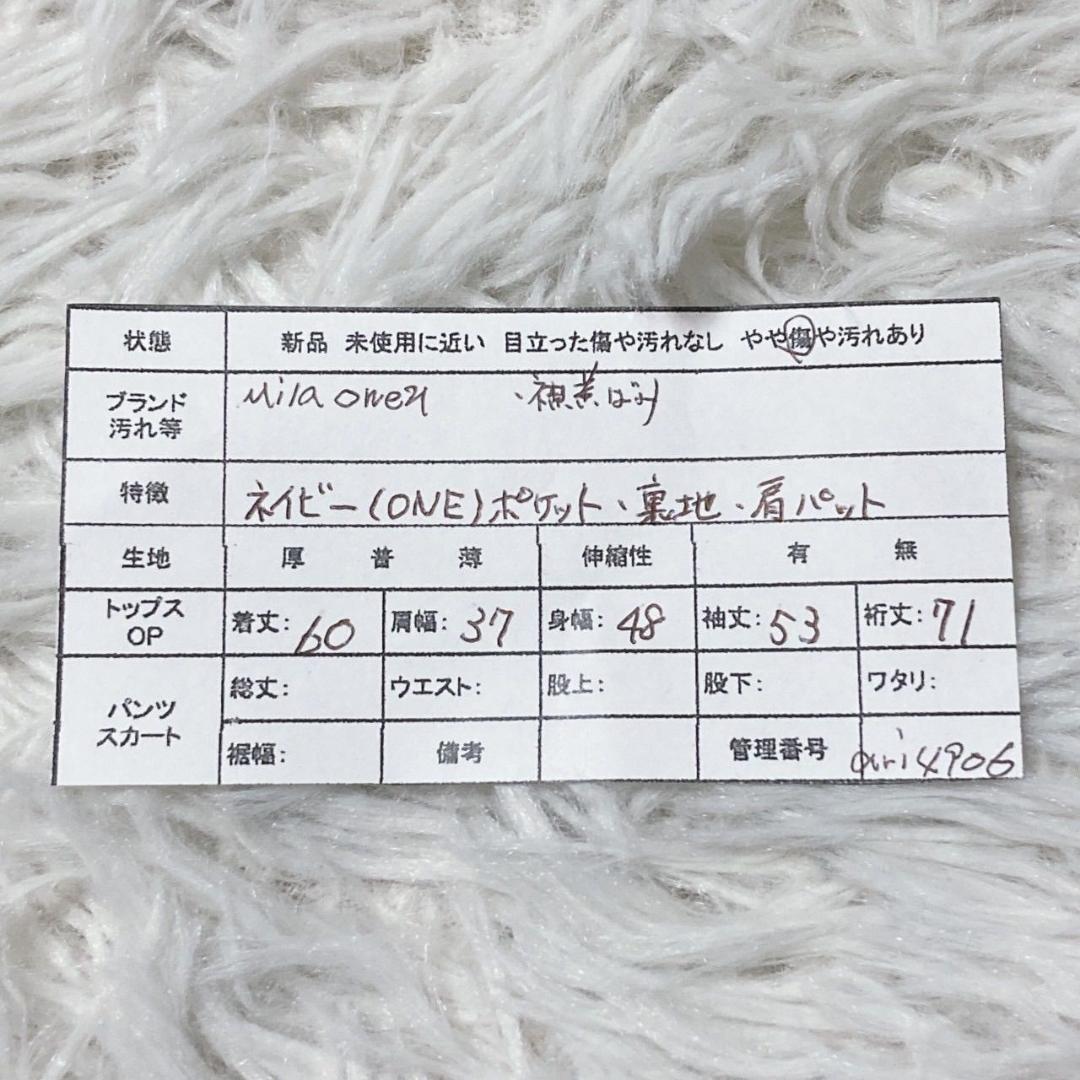 状態 新品 未使用に近い 目立った傷や汚れなし やや傷や汚れあり
ブランド 汚れ等 Mila Owen ・襟黄ばみ
特徴 ネイビー(ONE)ポケット、裏地、肩パット
生地 厚 普 薄 伸縮性 有 無
トップス OP 着丈: 60 肩幅: 37 身幅: 48 袖丈: 53 裄丈: 71
パンツ スカート 総丈: ウエスト: 股上: 股下: ワタリ:
裾幅: 備考 管理番号 ari4906